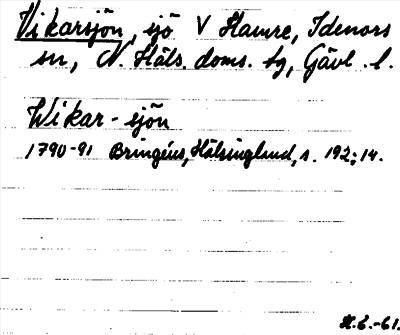 Vikarsjön, sjö V Hamre, Idenors
sn, N. Häls. doms. tg, Gävl. l.
Wikar-sjön
1790-91 Bringéus, Hälsingland, s. 192; 14.
H.E.-61.